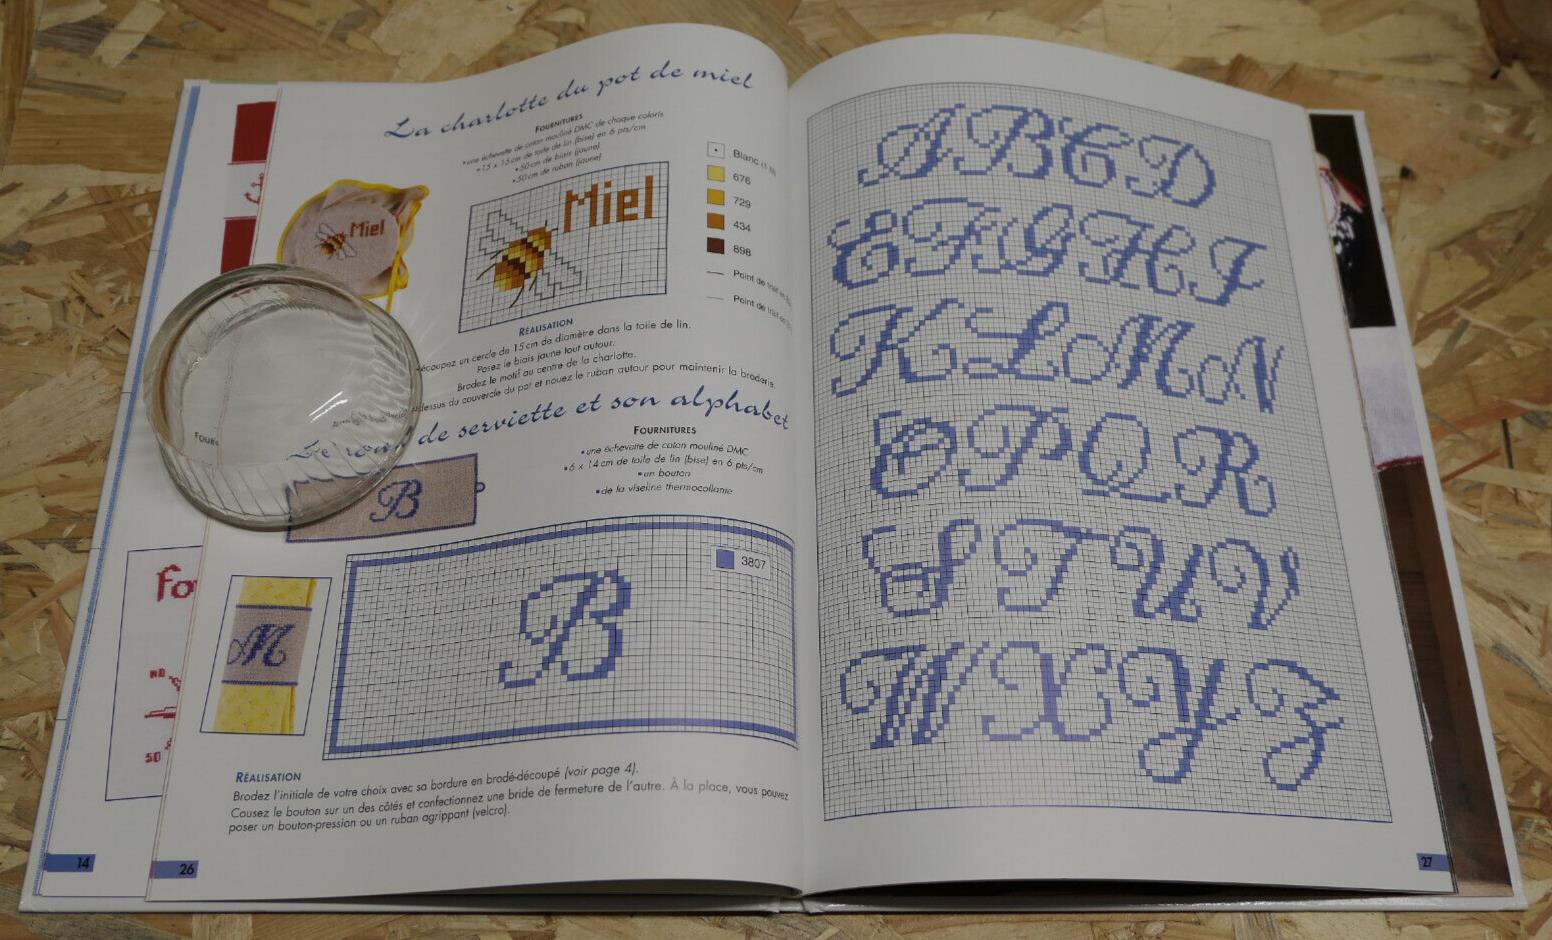 La charlotte du pot de miel
FOURNITURES
•une échevette de coton mouliné DMC de chaque coloris
•15 x 15 cm de toile de lin (bise) en 6 pts/cm
•50 cm de biais (jaune)
•50 cm de ruban (jaune)
Miel
Miel
Blanc
676
729
434
898
Point de trait
Point de trait
RÉALISATION
écoupez un cercle de 15 cm de diamètre dans la toile de lin.
Posez le biais jaune tout autour.
Brodez le motif au centre de la charlotte.
dessus du couvercle du pot et nouez le ruban autour pour maintenir la broderie.
de serviette et son alphabet
FOURNITURES
•une échevette de coton mouliné DMC
•6 x 14 cm de toile de lin (bise) en 6 pts/cm
•un bouton
•de la viseline thermocollante
B
3807
B
M
RÉALISATION
Brodez l'initiale de votre choix avec sa bordure en brodé-découpé (voir page 4).
Cousez le bouton sur un des côtés et confectionnez une bride de fermeture de l'autre. À la place, vous pouvez
poser un bouton-pression ou un ruban agrippant (velcro).
14
26
A B C D
E F G H I
K L M N
O P Q R
S T U V
W X Y Z
27